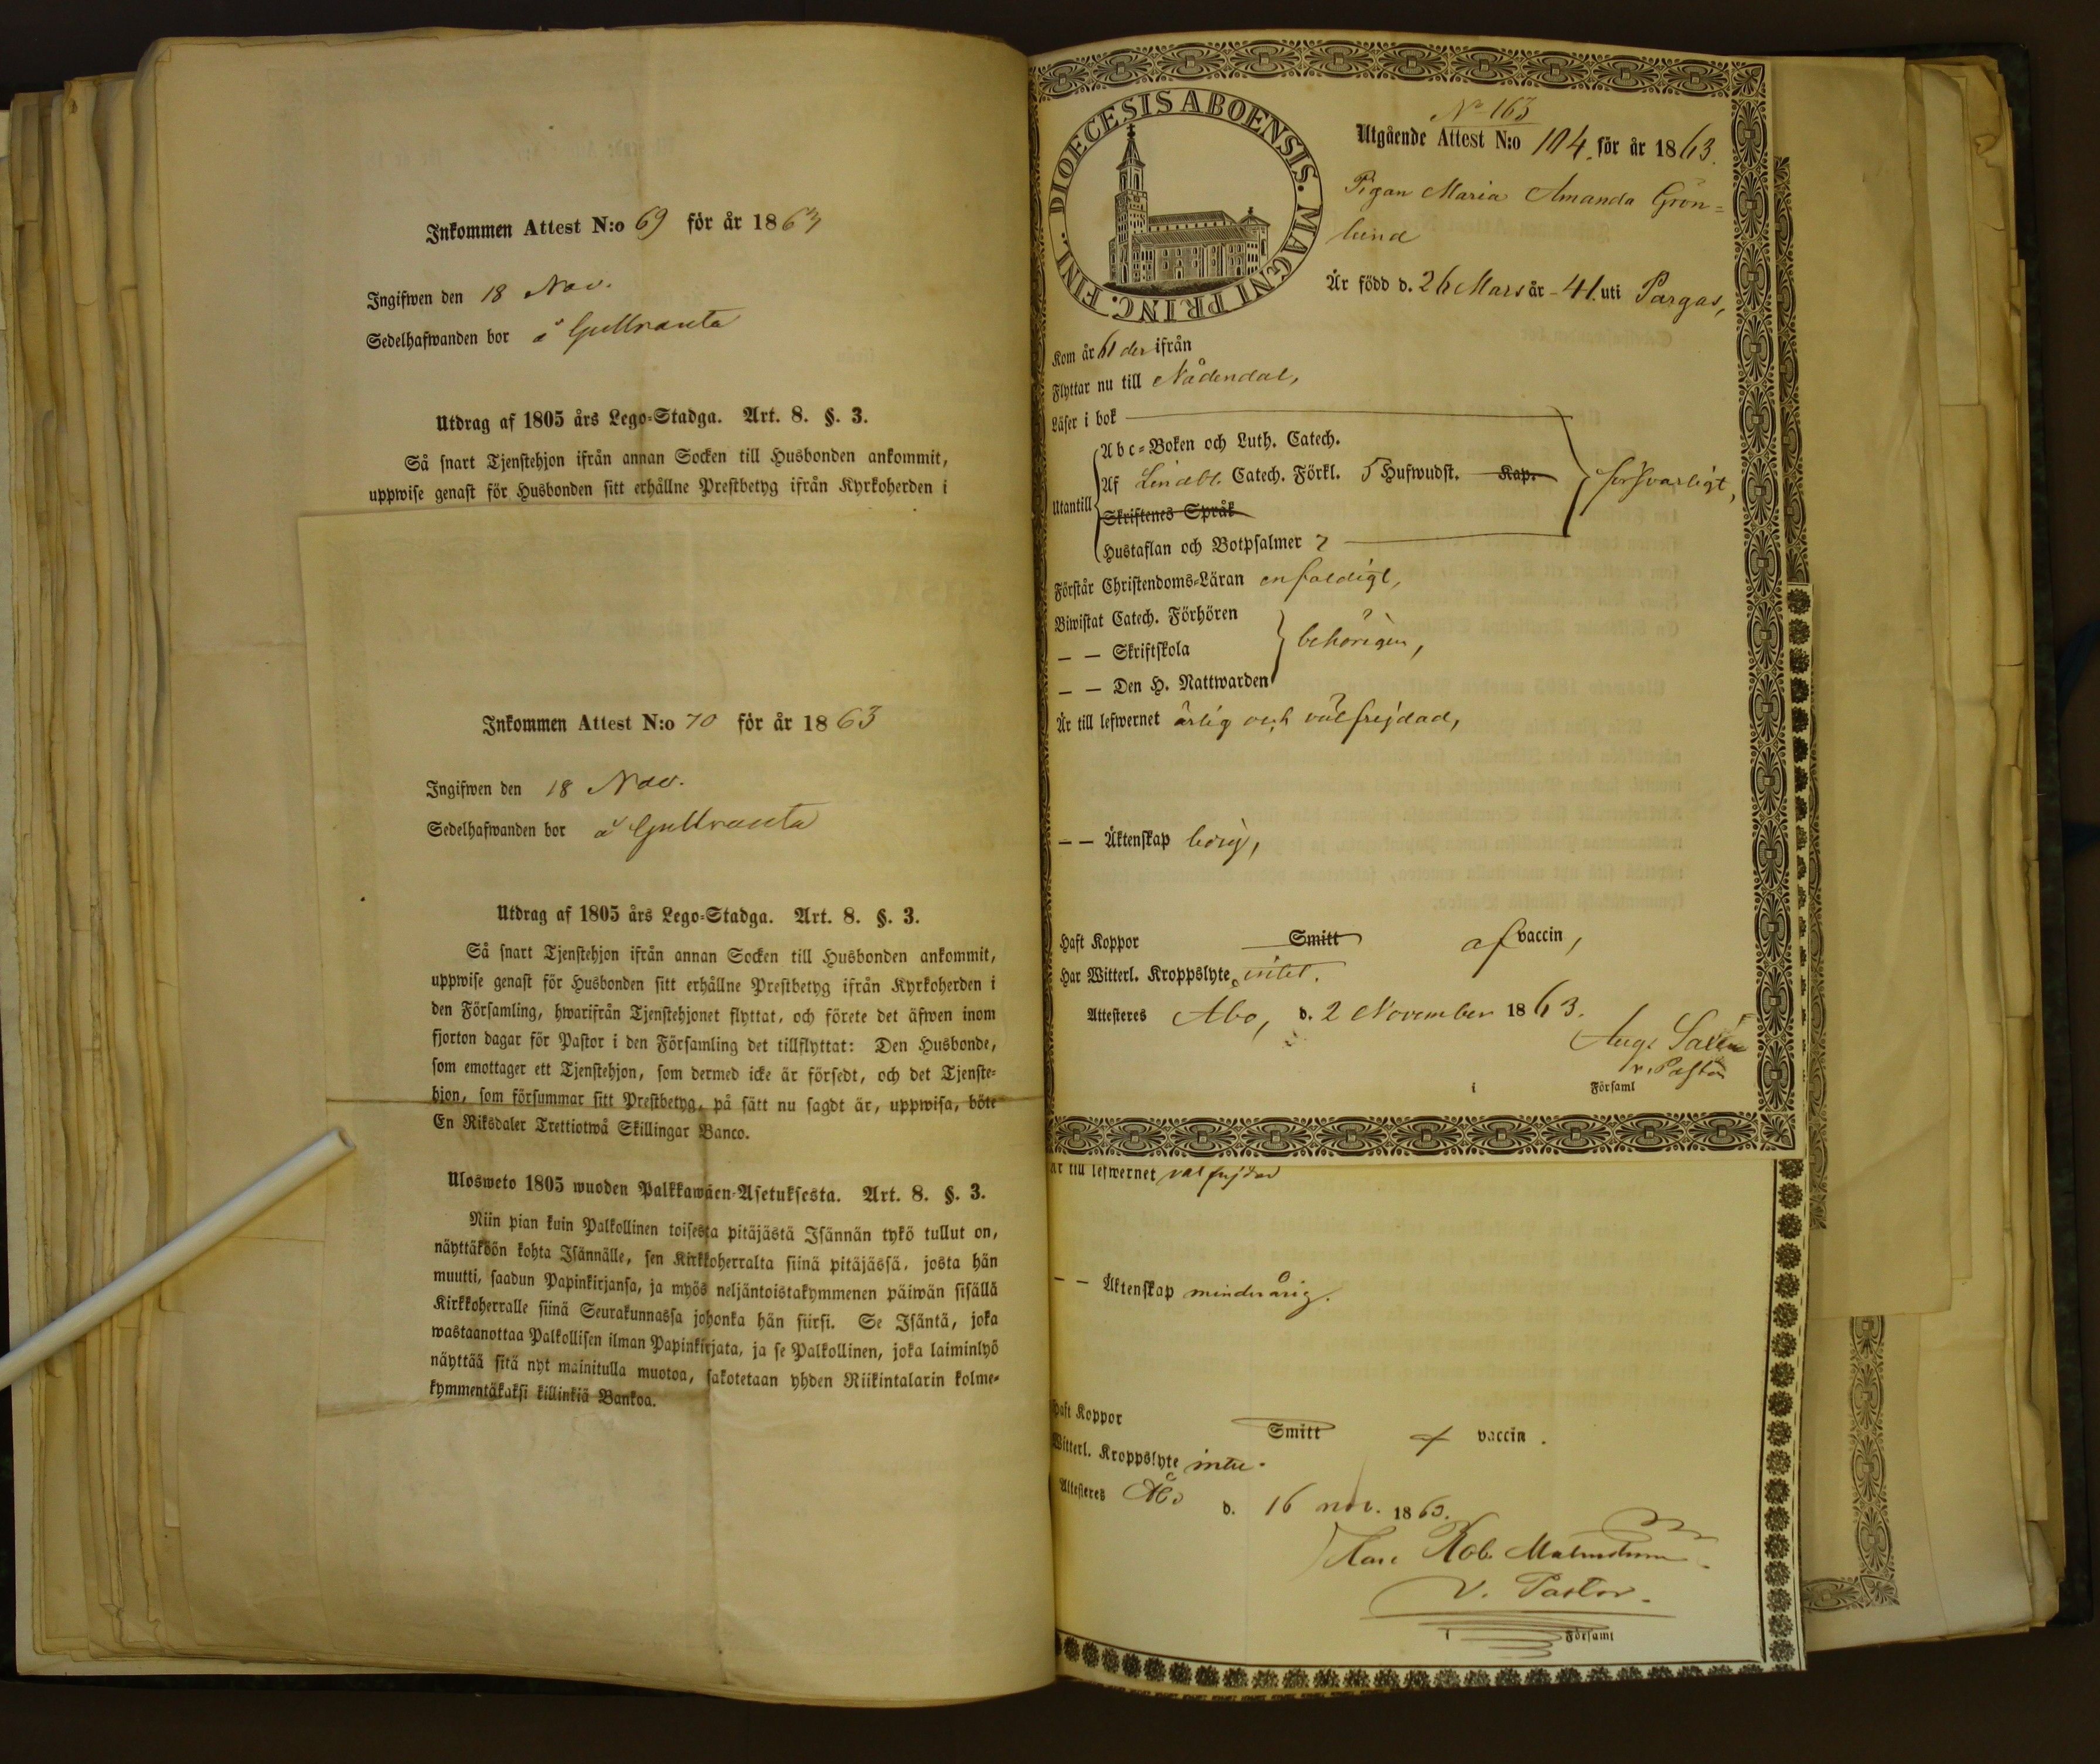 Inkommen Attest N:o 69 för år 1863
Ingifwen den 18 Nov.
Sedelhafwanden bor å Gullranta
Utdrag af 1805 års Lego-Stadga. Art. 8. §. 3.
Så snart Tjenstehjon ifrån annan Socken till Husbonden ankommit,
uppwise genast för Husbonden sitt erhållne Prestbetyg ifrån Kyrkoherden i
Inkommen Attest N:o 70 för år 1863
Ingifwen den 18 Nov.
Sedelhafwanden bor å Gullranta
Utdrag af 1805 års Lego-Stadga. Art. 8. §. 3.
Så snart Tjenstehjon ifrån annan Socken till Husbonden ankommit,
uppwise genast för Husbonden sitt erhållne Prestbetyg ifrån Kyrkoherden i
den Församling, hwarifrån Tjenstehjonet flyttat, och förete det äfwen inom
fjorton dagar för Pastor i den Församling det tillflyttat: Den Husbonde,
som emottager ett Tjenstehjon, som dermed icke är försedt, och det Tjenste-
hjon, som försummar sitt Prestbetyg, på sätt nu sagdt är, uppwisa, böte
En Riksdaler Trettiotwå Skillingar Banco.
Ulosweto 1805 wuoden Palkkawäen-Asetuksesta. Art. 8. §. 3.
Niin pian kuin Palkollinen toisesta pitäjästä Isännän tykö tullut on,
näyttäköön kohta Isännälle, sen Kirkkoherralta siinä pitäjässä, josta hän
muutti, saadun Papinkirjansa, ja myös neljäntoistakymmenen päiwän sisällä
Kirkkoherralle siinä Seurakunnassa johonka hän siirsi. Se Isäntä, joka
wastaanottaa Palkollisen ilman Papinkirjata, ja se Palkollinen, joka laiminlyö
näyttää sitä nyt mainitulla muotoa, sakotetaan yhden Riikintalarin kolme-
kymmentäkaksi killinkiä Bankoa.
DIOECESIS ABOENSIS. MAGNI PRINC. FINL.
No 163
Utgående Attest N:o 104. för år 1863.
Pigan Maria Amanda Grön=
lund
Är född d. 26 Mars år -41. uti Pargas,
Kom år 61 der ifrån
Flyttar nu till Nådendal,
Läser i bok
Utantill
Abc-Boken och Luth. Catech.
Af Lindbl. Catech. Förkl. 5 Hufwudst. Kap.
försvarligt,
Skriftenes Språk
Hustaflan och Botpsalmer 7
Förstår Christendoms-Läran enfaldigt,
Biwistat Catech. Förhören
— — Skriftskola
behörigen,
— — Den H. Nattwarden
Är till lefwernet ärlig och välfrejdad,
— — Äktenskap ledig,
Haft Koppor Smitt af vaccin,
Har Witterl. Kroppslyte intet.
Attesteres Åbo, d. 2 November 1863.
Aug. Saxén
v. Pastor
i Församl
är till lefwernet välfrejdad
— — Äktenskap minderårig.
Haft Koppor Smitt vaccin.
Witterl. Kroppslyte intet.
Attesteres Åbo d. 16 nov. 1863.
Karl Rob. Malmström
V. Pastor.
i Församl